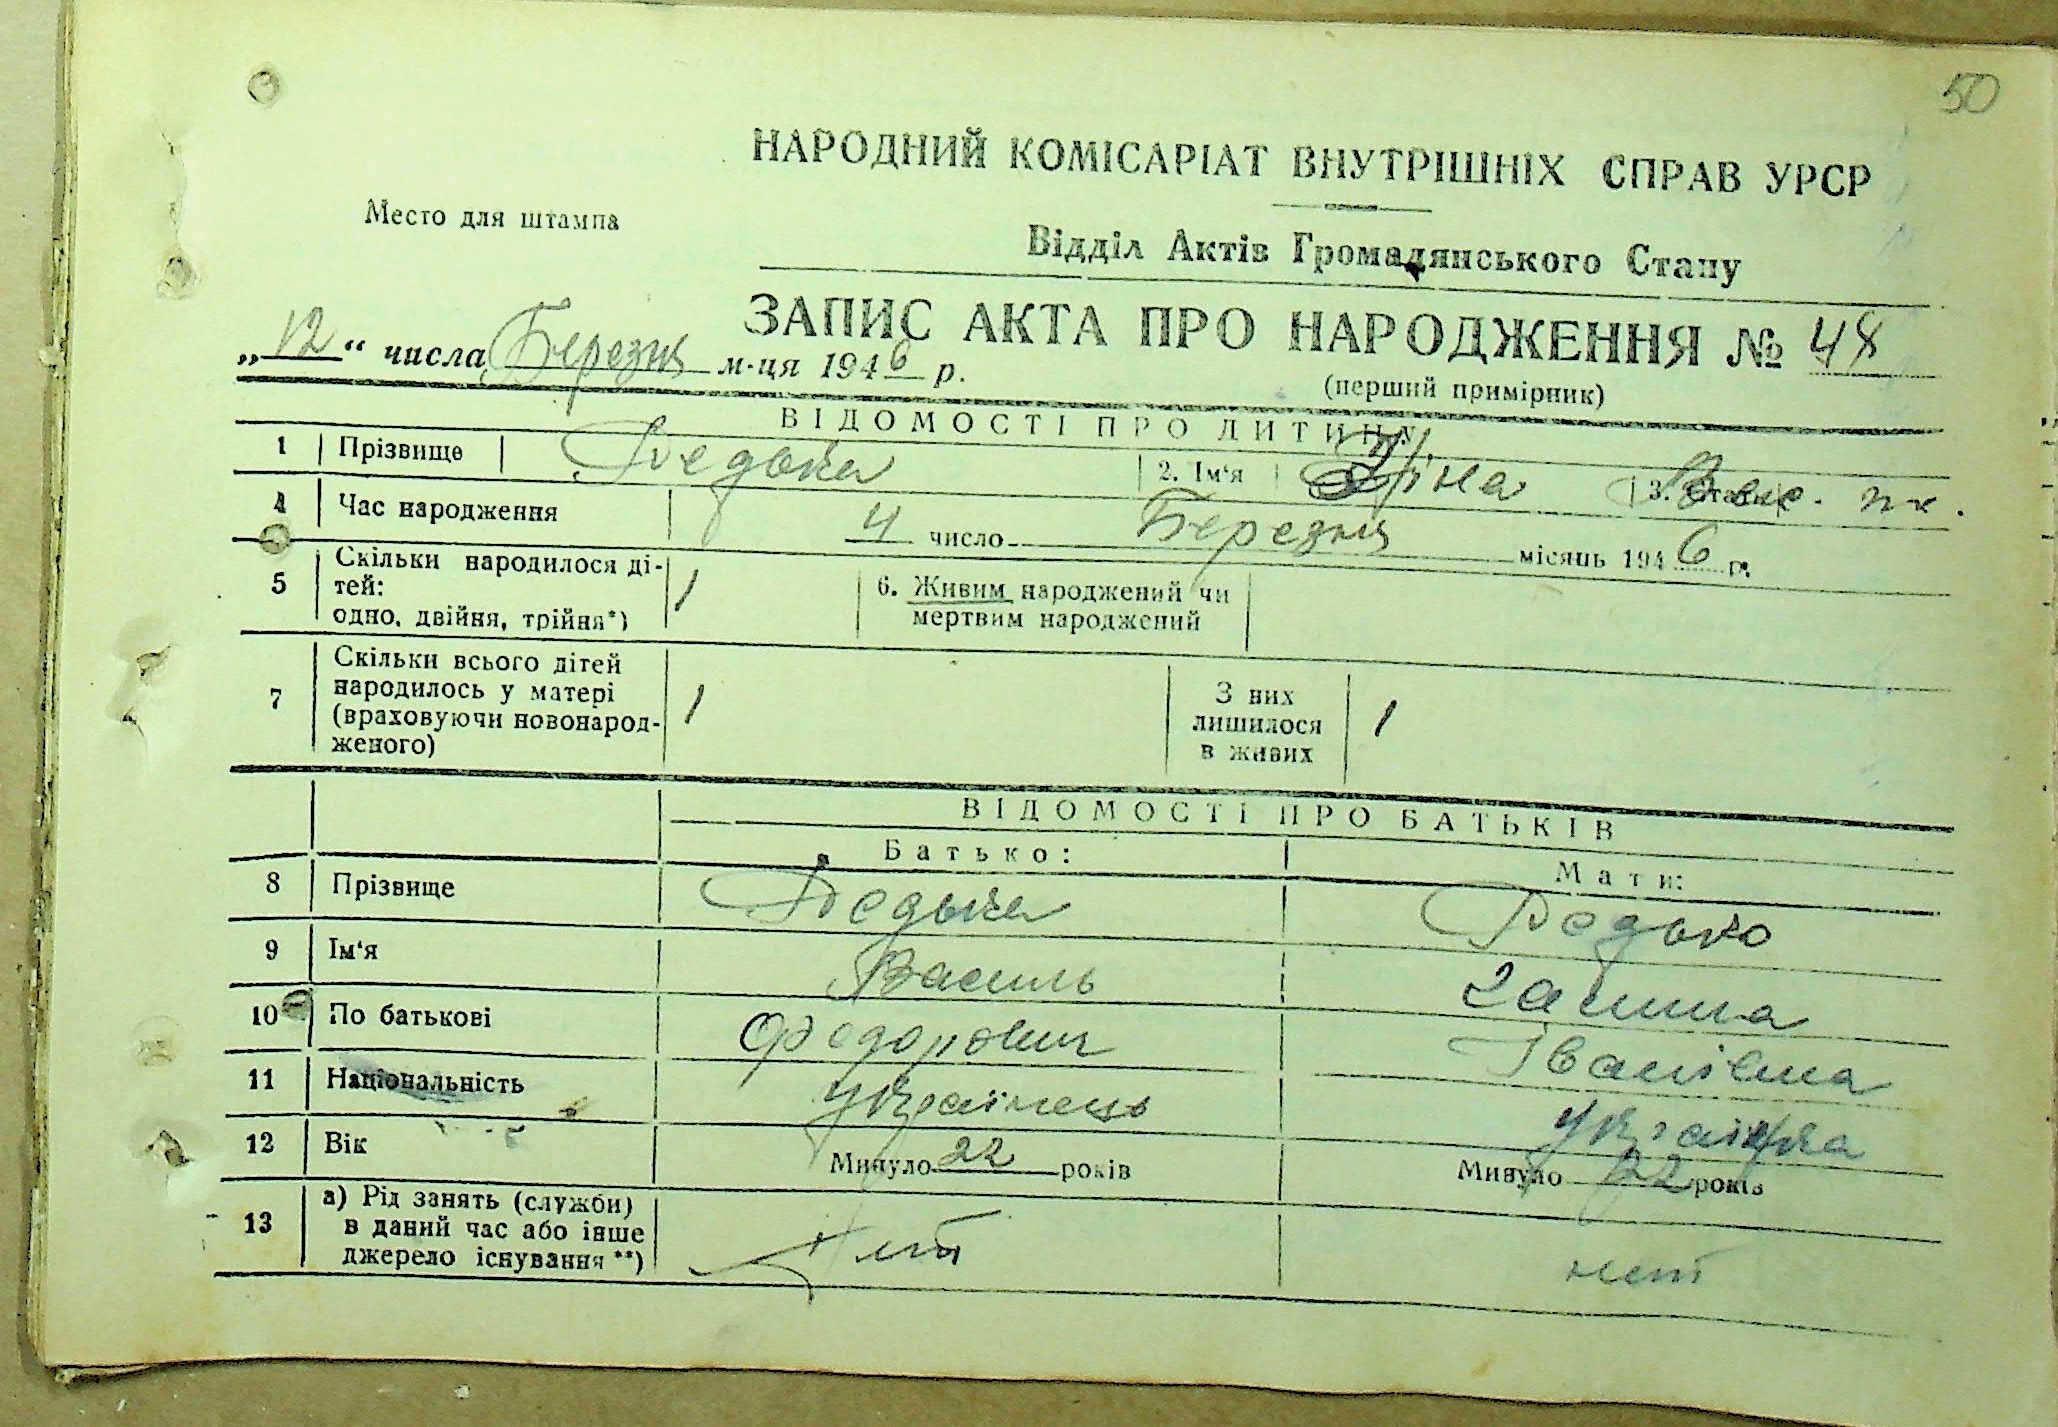 50
НАРОДНИЙ КОМІСАРІАТ ВНУТРІШНІХ СПРАВ УРСР
Место для штампа
Відділ Актів Громадянського Стану
ЗАПИС АКТА ПРО НАРОДЖЕННЯ № 48
„12“ числа Березня м-ця 1946 р.
(перший примірник)
ВІДОМОСТІ ПРО ДИТИНУ
1 Прізвище Редька 2. Ім'я Ніна 3. Стать
4 Час народження 4 число Березня місяць 1946 р.
5 Скільки народилося ді-
тей:
одно, двійня, трійня*) 1
6. Живим народжений чи
мертвим народжений
7 Скільки всього дітей
народилось у матері
(враховуючи новонарод-
женого) 1
З них
лишилося
в живих 1
ВІДОМОСТІ ПРО БАТЬКІВ
Батько: Мати:
8 Прізвище Редька Редько
9 Ім'я Василь Галина
10 По батькові Федорович Іванівна
11 Національність Українець Українка
12 Вік Минуло 22 років Минуло 22 років
13 а) Рід занять (служби)
в даний час або інше
джерело існування **) нет